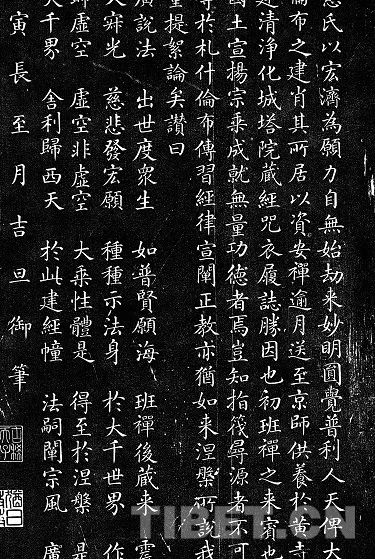 氏以宏濟為願力自無始劫来妙明圓覺普利人天俾大
倫布之建肖其所居以資安禪逾月送至京師供養於黄寺
建清淨化城塔院藏經咒衣履誌勝因也初班禪之来賓也
國土宣揚宗乗成就無量功德者焉豈知指筏尋源者不可
於札什倫布傳習經律宣闡正教亦猶如来涅槃所說我
重提絮論矣讃曰
廣說法 出世度衆生 如普賢願海 班禪後藏来 震
大寂光 慈悲發宏願 種種示法身 於大千世界 作
虚空 虚空非虚空 大乗性體是 得至於涅槃 是
大千界 舍利歸西天 於此建經幢 法嗣闡宗風 廣
寅長至月吉旦御筆
TIBET.CN